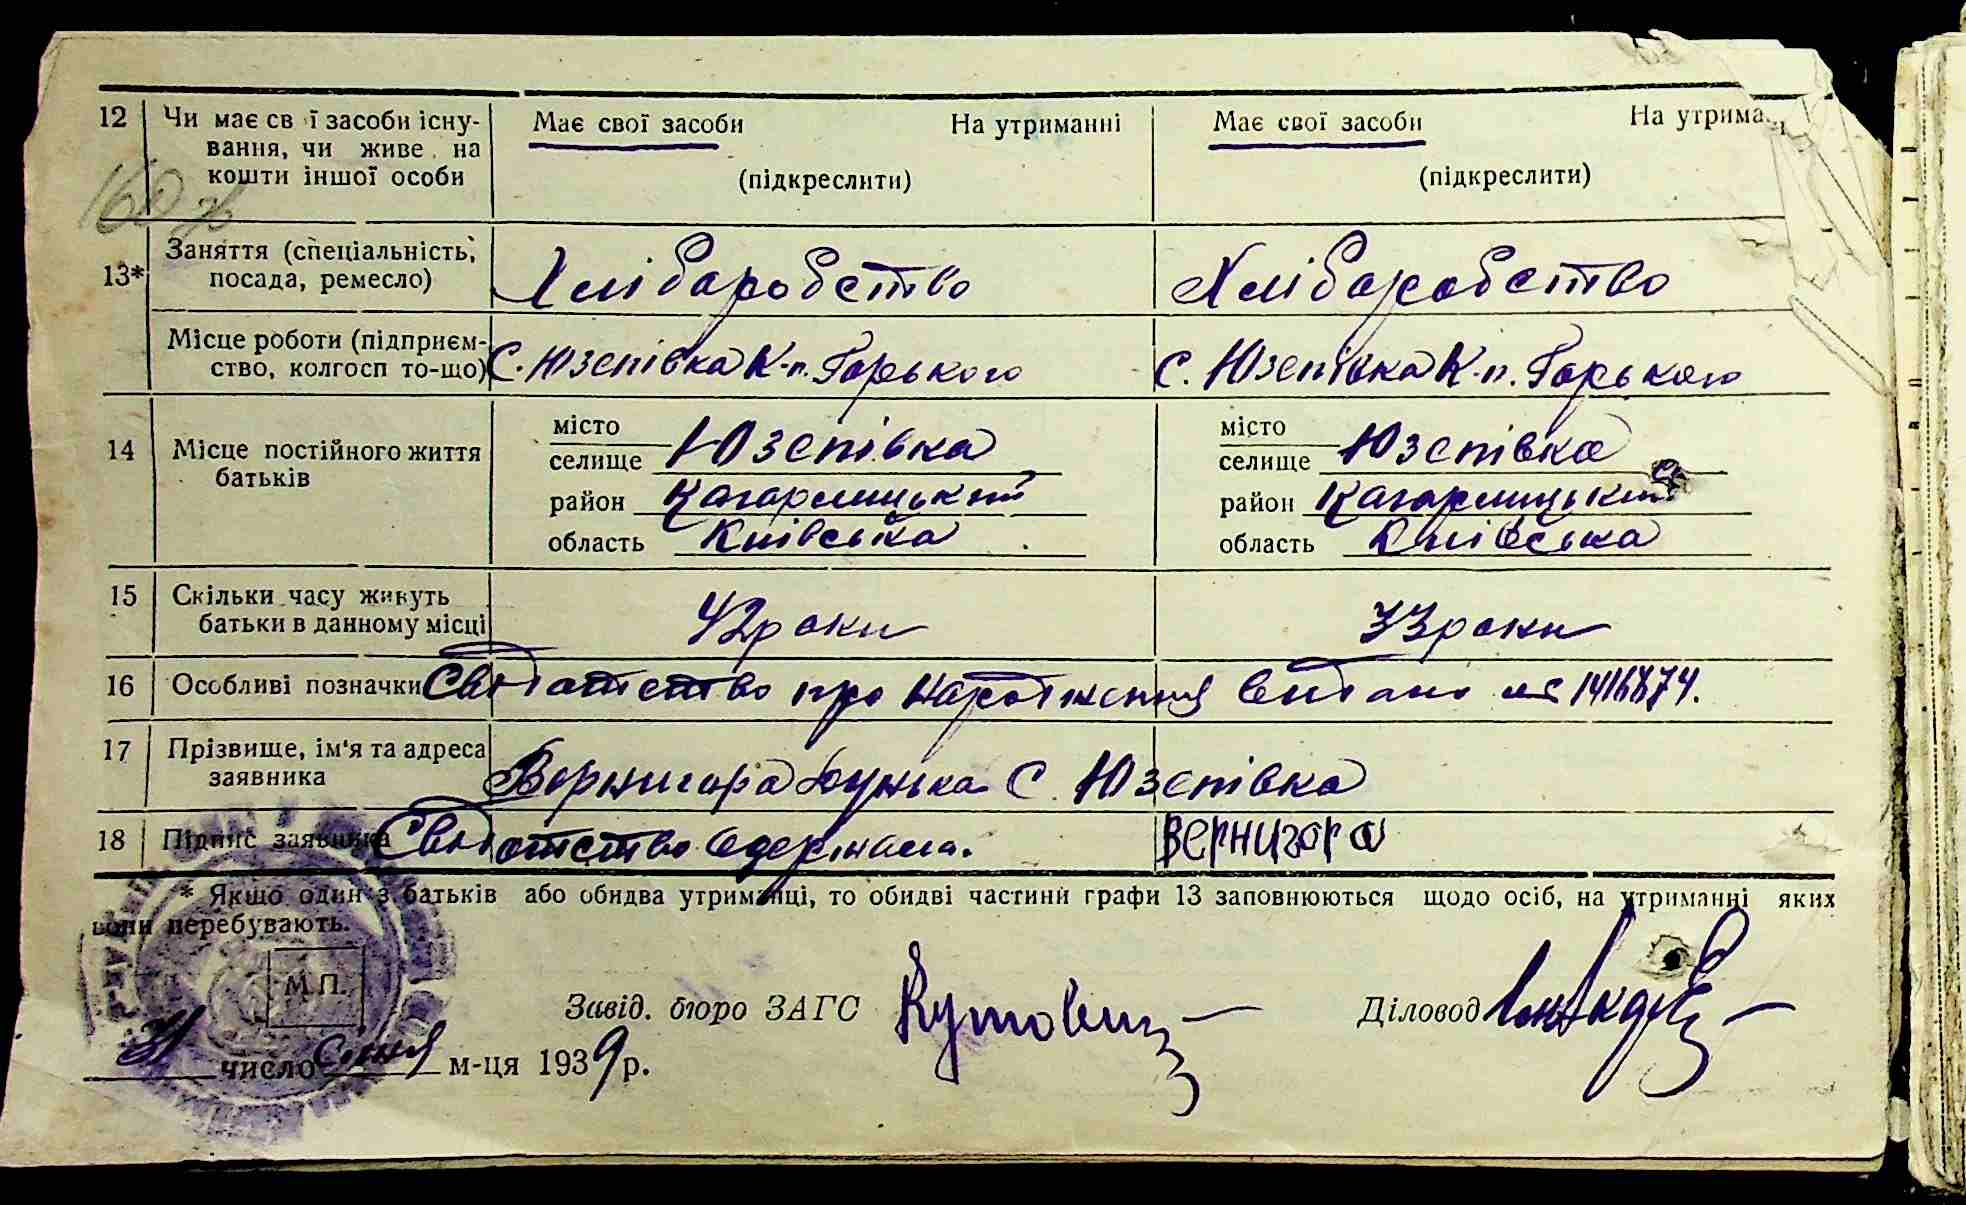 12 Чи має св ї засоби існу- Має свої засоби На утриманні Має свої засоби На утрима
вання, чи живе на
кошти іншої особи (підкреслити) (підкреслити)
160
Заняття (спеціальність, Хліборобство Хліборобство
13* посада, ремесло)
Місце роботи (підприєм-
ство, колгосп то-що) С. Юзепівка К-п. Горького С. Юзепівка К-п. Горького
14 Місце постійного життя
батьків
місто
селище Юзепівка
район Кагарлицький
область Київська
місто
селище Юзепівка
район Кагарлицький
область Київська
15 Скільки часу живуть
батьки в данному місці 42 роки 33 роки
16 Особливі позначки Свідотство про народження видано 1416874.
17 Прізвище, ім'я та адреса
заявника Вернигора С. Юзепівка
18 Підпис заявника Свідотство одержала. Вернигора
* Якщо один з батьків або обидва утриманці, то обидві частини графи 13 заповнюються щодо осіб, на утриманні яких
вони перебувають.
М.П.
Завід. бюро ЗАГС Діловод
31 число січня м-ця 1939 р.